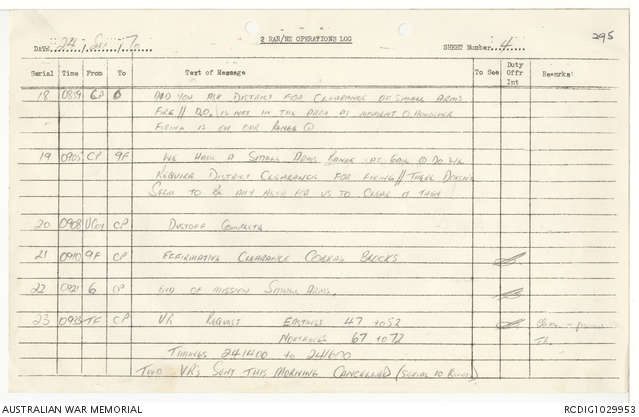 295
2 RAR/NZ OPERATIONS LOG
DATE 24 / / 70 SHEET Number 4
Serial Time From To Text of Message To See Duty Offr Int Remarks
18 0859 CP 6 DID YOU ASK DISTRICT FOR CLEARANCE OF SMALL ARMS
FIRE // D.O. IS NOT IN THE AREA AT MOMENT
FIRING IS ON OUR RANGE
19 0905 CP 9F WE HAVE A SMALL ARMS RANGE DO WE
REQUIRE DISTRICT CLEARANCE FOR FIRING // THERE DOESN'T
SEEM TO BE ANY NEED FOR US TO CLEAR IT THEN
20 0908 CP DUSTOFF COMPLETE
21 0910 9F CP AFFIRMATIVE CLEARANCE
22 0921 6 CP END OF MISSION SMALL ARMS.
23 TF CP VR REQUEST EASTINGS 47 to 52
NORTHINGS 67 to 72
TIMINGS 241400 to 241600
VR'S SENT THIS MORNING CANCELLED
AUSTRALIAN WAR MEMORIAL
RCDIG1029953